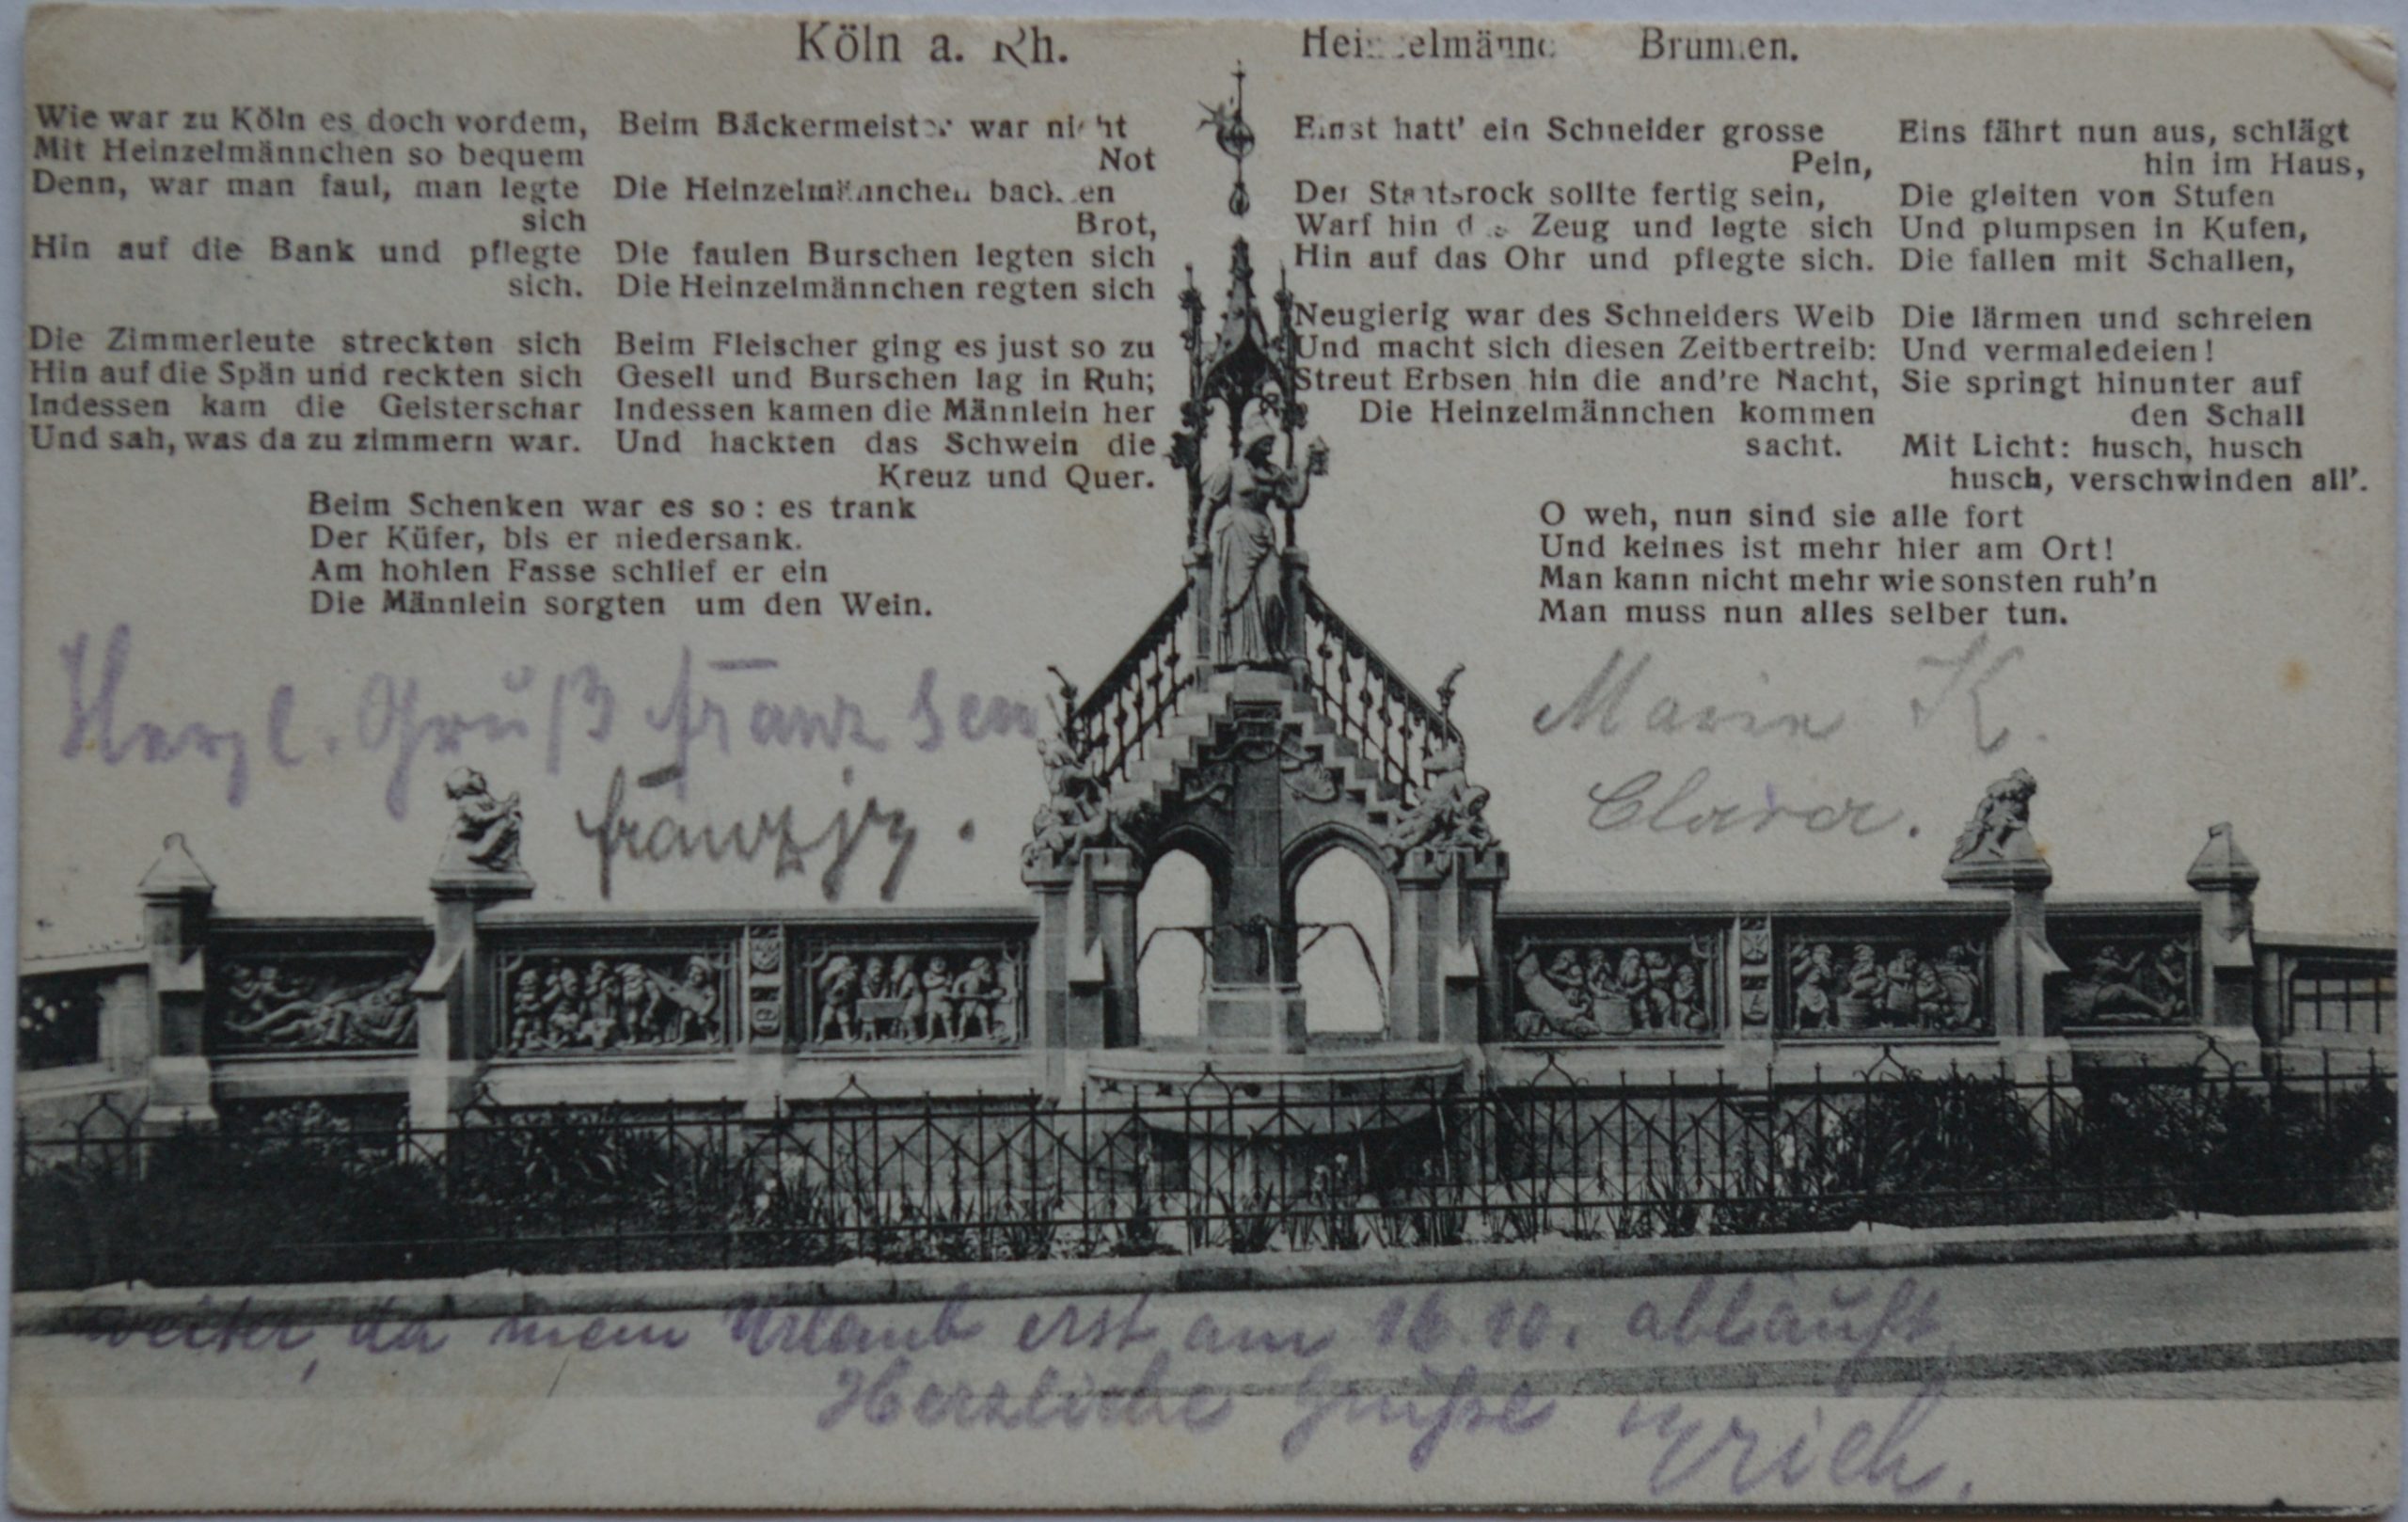 Köln a. Rh. Heinzelmännc Brunnen.
Wie war zu Köln es doch vordem,
Mit Heinzelmännchen so bequem
Denn, war man faul, man legte
sich
Hin auf die Bank und pflegte
sich.
Die Zimmerleute streckten sich
Hin auf die Spän und reckten sich
Indessen kam die Geisterschar
Und sah, was da zu zimmern war.
Beim Bäckermeister war nicht
Not
Die Heinzelmännchen backten
Brot,
Die faulen Burschen legten sich
Die Heinzelmännchen regten sich
Beim Fleischer ging es just so zu
Gesell und Burschen lag in Ruh;
Indessen kamen die Männlein her
Und hackten das Schwein die
Kreuz und Quer.
Beim Schenken war es so: es trank
Der Küfer, bis er niedersank.
Am hohlen Fasse schlief er ein
Die Männlein sorgten um den Wein.
Einst hatt' ein Schneider grosse
Pein,
Der Staatsrock sollte fertig sein,
Warf hin das Zeug und legte sich
Hin auf das Ohr und pflegte sich.
Neugierig war des Schneiders Weib
Und macht sich diesen Zeitbertreib:
Streut Erbsen hin die and're Nacht,
Die Heinzelmännchen kommen
sacht.
Eins fährt nun aus, schlägt
hin im Haus,
Die gleiten von Stufen
Und plumpsen in Kufen,
Die fallen mit Schallen,
Die lärmen und schreien
Und vermaledeien!
Sie springt hinunter auf
den Schall
Mit Licht: husch, husch
husch, verschwinden all'.
O weh, nun sind sie alle fort
Und keines ist mehr hier am Ort!
Man kann nicht mehr wie sonsten ruh'n
Man muss nun alles selber tun.
Herzl. Gruß Franz sen
Franz jr.
Marie K.
Clara.
weiter, da mein Urlaub erst am 16.10. abläuft
Herzliche Grüße
Erich.